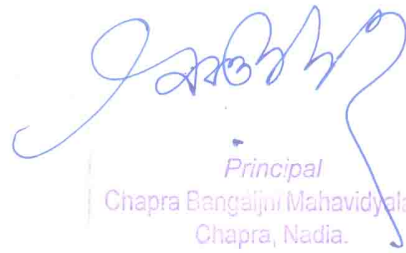 Principal
Chapra Bangaljhi Mahavidyala
Chapra, Nadia.